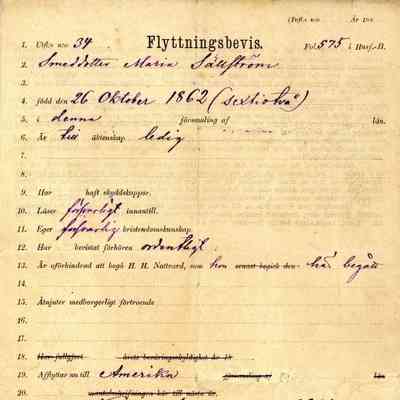 (Inft. n:o År 18
1. Utfl.: n:o 34. Flyttningsbevis. Fol. 575 i Husf.-B.
2. Smeddotter Maria Sällström
3.
4. född den 26 Oktober 1862 (sextiotvå)
5. i denna församling af län.
6. Är till äktenskap ledig
7.
8.
9. Har haft skyddskoppor.
10. Läser försvarligt innantill.
11. Eger försvarlig kristendomskunskap.
12. Har bevistat förhören ordentligt.
13. Är oförhindrad att begå H. H. Nattvard, som hon senast begick den här begått
14.
15. Åtnjuter medborgerligt förtroende
16.
17.
18. Har fullgjort årets beväringsskyldighet år 18
19. Afflyttar nu till Amerika församling af län
20. mantalsskrifningen här till nästa år.